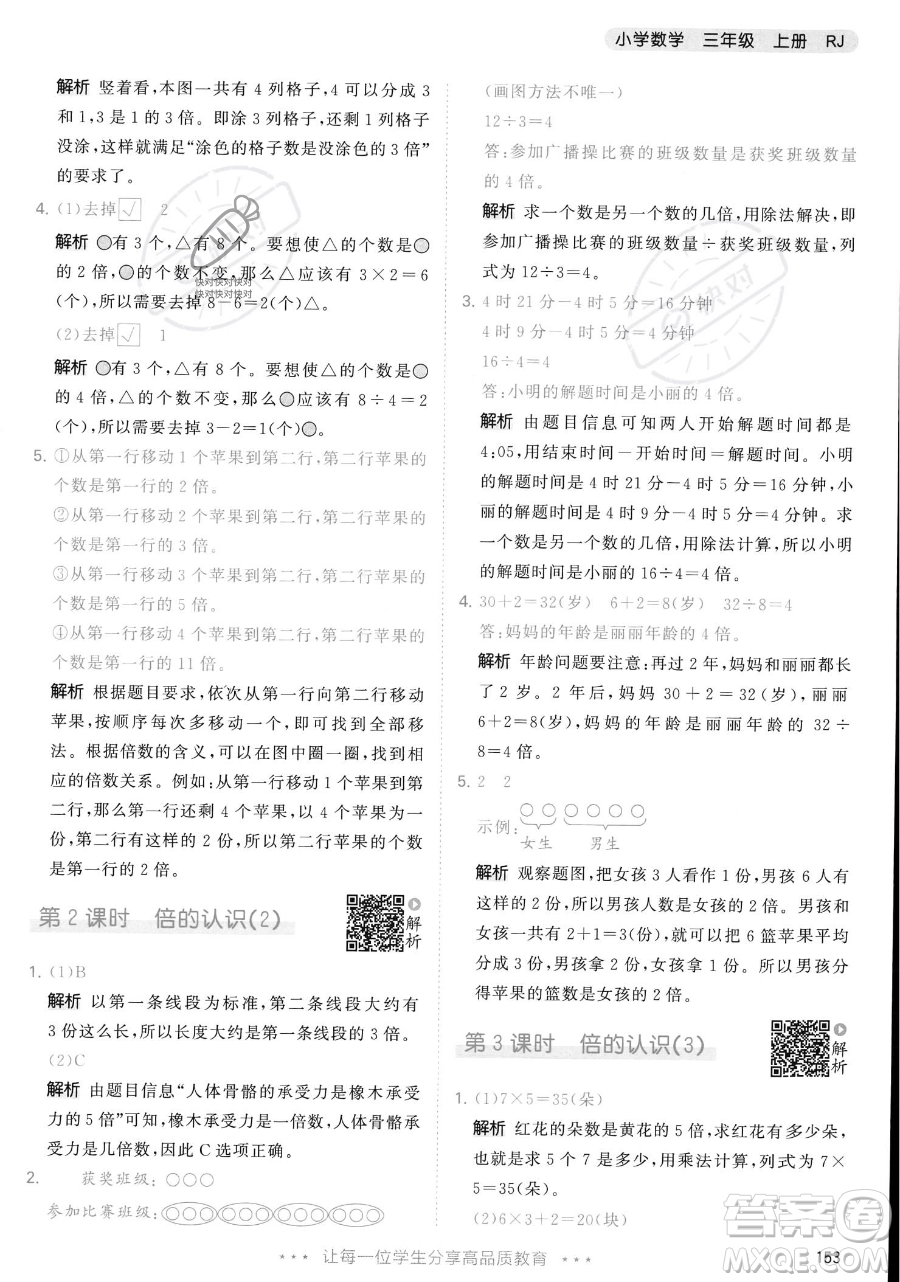 小学数学 三年级 上册 RJ
解析 竖着看,本图一共有 4 列格子,4 可以分成 3
和 1,3 是 1 的 3 倍。即涂 3 列格子,还剩 1 列格子
没涂,这样就满足“涂色的格子数是没涂色的 3 倍”
的要求了。
4. (1)去掉√ 2
解析 ●有 3 个,△有 8 个。要想使△的个数是●
的 2 倍,●的个数不变,那么△应该有 3×2=6
(个),所以需要去掉 8-6=2(个)△。
(2)去掉√ 1
解析 ●有 3 个,△有 8 个。要想使△的个数是●
的 4 倍,△的个数不变,那么●应该有 8÷4=2
(个),所以需要去掉 3-2=1(个)●。
5. ①从第一行移动 1 个苹果到第二行,第二行苹果的
个数是第一行的 2 倍。
②从第一行移动 2 个苹果到第二行,第二行苹果的
个数是第一行的 3 倍。
③从第一行移动 3 个苹果到第二行,第二行苹果的
个数是第一行的 5 倍。
④从第一行移动 4 个苹果到第二行,第二行苹果的
个数是第一行的 11 倍。
解析 根据题目要求,依次从第一行向第二行移动
苹果,按顺序每次多移动一个,即可找到全部移
法。根据倍数的含义,可以在图中圈一圈,找到相
应的倍数关系。例如:从第一行移动 1 个苹果到第
二行,那么第一行还剩 4 个苹果,以 4 个苹果为一
份,第二行有这样的 2 份,所以第二行苹果的个数
是第一行的 2 倍。
第 2 课时 倍的认识(2)
解析
1. (1)B
解析 以第一条线段为标准,第二条线段大约有
3 份这么长,所以长度大约是第一条的 3 倍。
(2)C
解析 由题目信息“人体骨骼的承受力是橡木承受力
的 5 倍”可知,橡木承受力是一倍数,人体骨骼承受
力是几倍数,因此 C 选项正确。
2. 获奖班级:○○○
参加比赛班级:○○○○○○○○○○○○
(画图方法不唯一)
12÷3=4
答:参加广播操比赛的班级数量是获奖班级数量
的 4 倍。
解析 求一个数是另一个数的几倍,用除法解决,即
参加广播操比赛的班级数量÷获奖班级数量,列
式为 12÷3=4。
3. 4 时 21 分-4 时 5 分=16 分钟
4 时 9 分-4 时 5 分=4 分钟
16÷4=4
答:小明的解题时间是小丽的 4 倍。
解析 由题目信息可知两人开始解题时间都是
4:05,用结束时间-开始时间=解题时间。小明
的解题时间是 4 时 21 分-4 时 5 分=16 分钟,小
丽的解题时间是 4 时 9 分-4 时 5 分=4 分钟。求
一个数是另一个数的几倍,用除法计算,所以小明
的解题时间是小丽的 16÷4=4 倍。
4. 30+2=32(岁) 6+2=8(岁) 32÷8=4
答:妈妈的年龄是丽丽年龄的 4 倍。
解析 年龄问题要注意:再过 2 年,妈妈和丽丽都长
了 2 岁。2 年后,妈妈 30+2=32(岁),丽丽
6+2=8(岁),妈妈的年龄是丽丽年龄的 32÷
8=4 倍。
5. 2 2
示例:○○○ ○○○○○○
女生 男生
解析 观察题图,把女孩 3 人看作 1 份,男孩 6 人
就是 2 份,男孩人数是女孩人数的 2 倍。男孩和
女孩一共有 2+1=3 份,现在要把 6 篮苹果平均分
成 3 份,男孩拿 2 份,女孩拿 1 份,因此男孩应分
得苹果的篮数是女孩的 2 倍。
第 3 课时 倍的认识(3)
解析
1. (1)7×5=35(朵)
解析 红花的朵数是黄花的 5 倍,求红花有多少朵,
就是求 7 的 5 倍是多少,用乘法计算,列式为 7×
5=35(朵)。
(2)6×3+2=20(块)
快对快对快对快对
快对快对快对快对
快对
让每一位学生分享高品质教育
153
答案圈
MXQE.COM